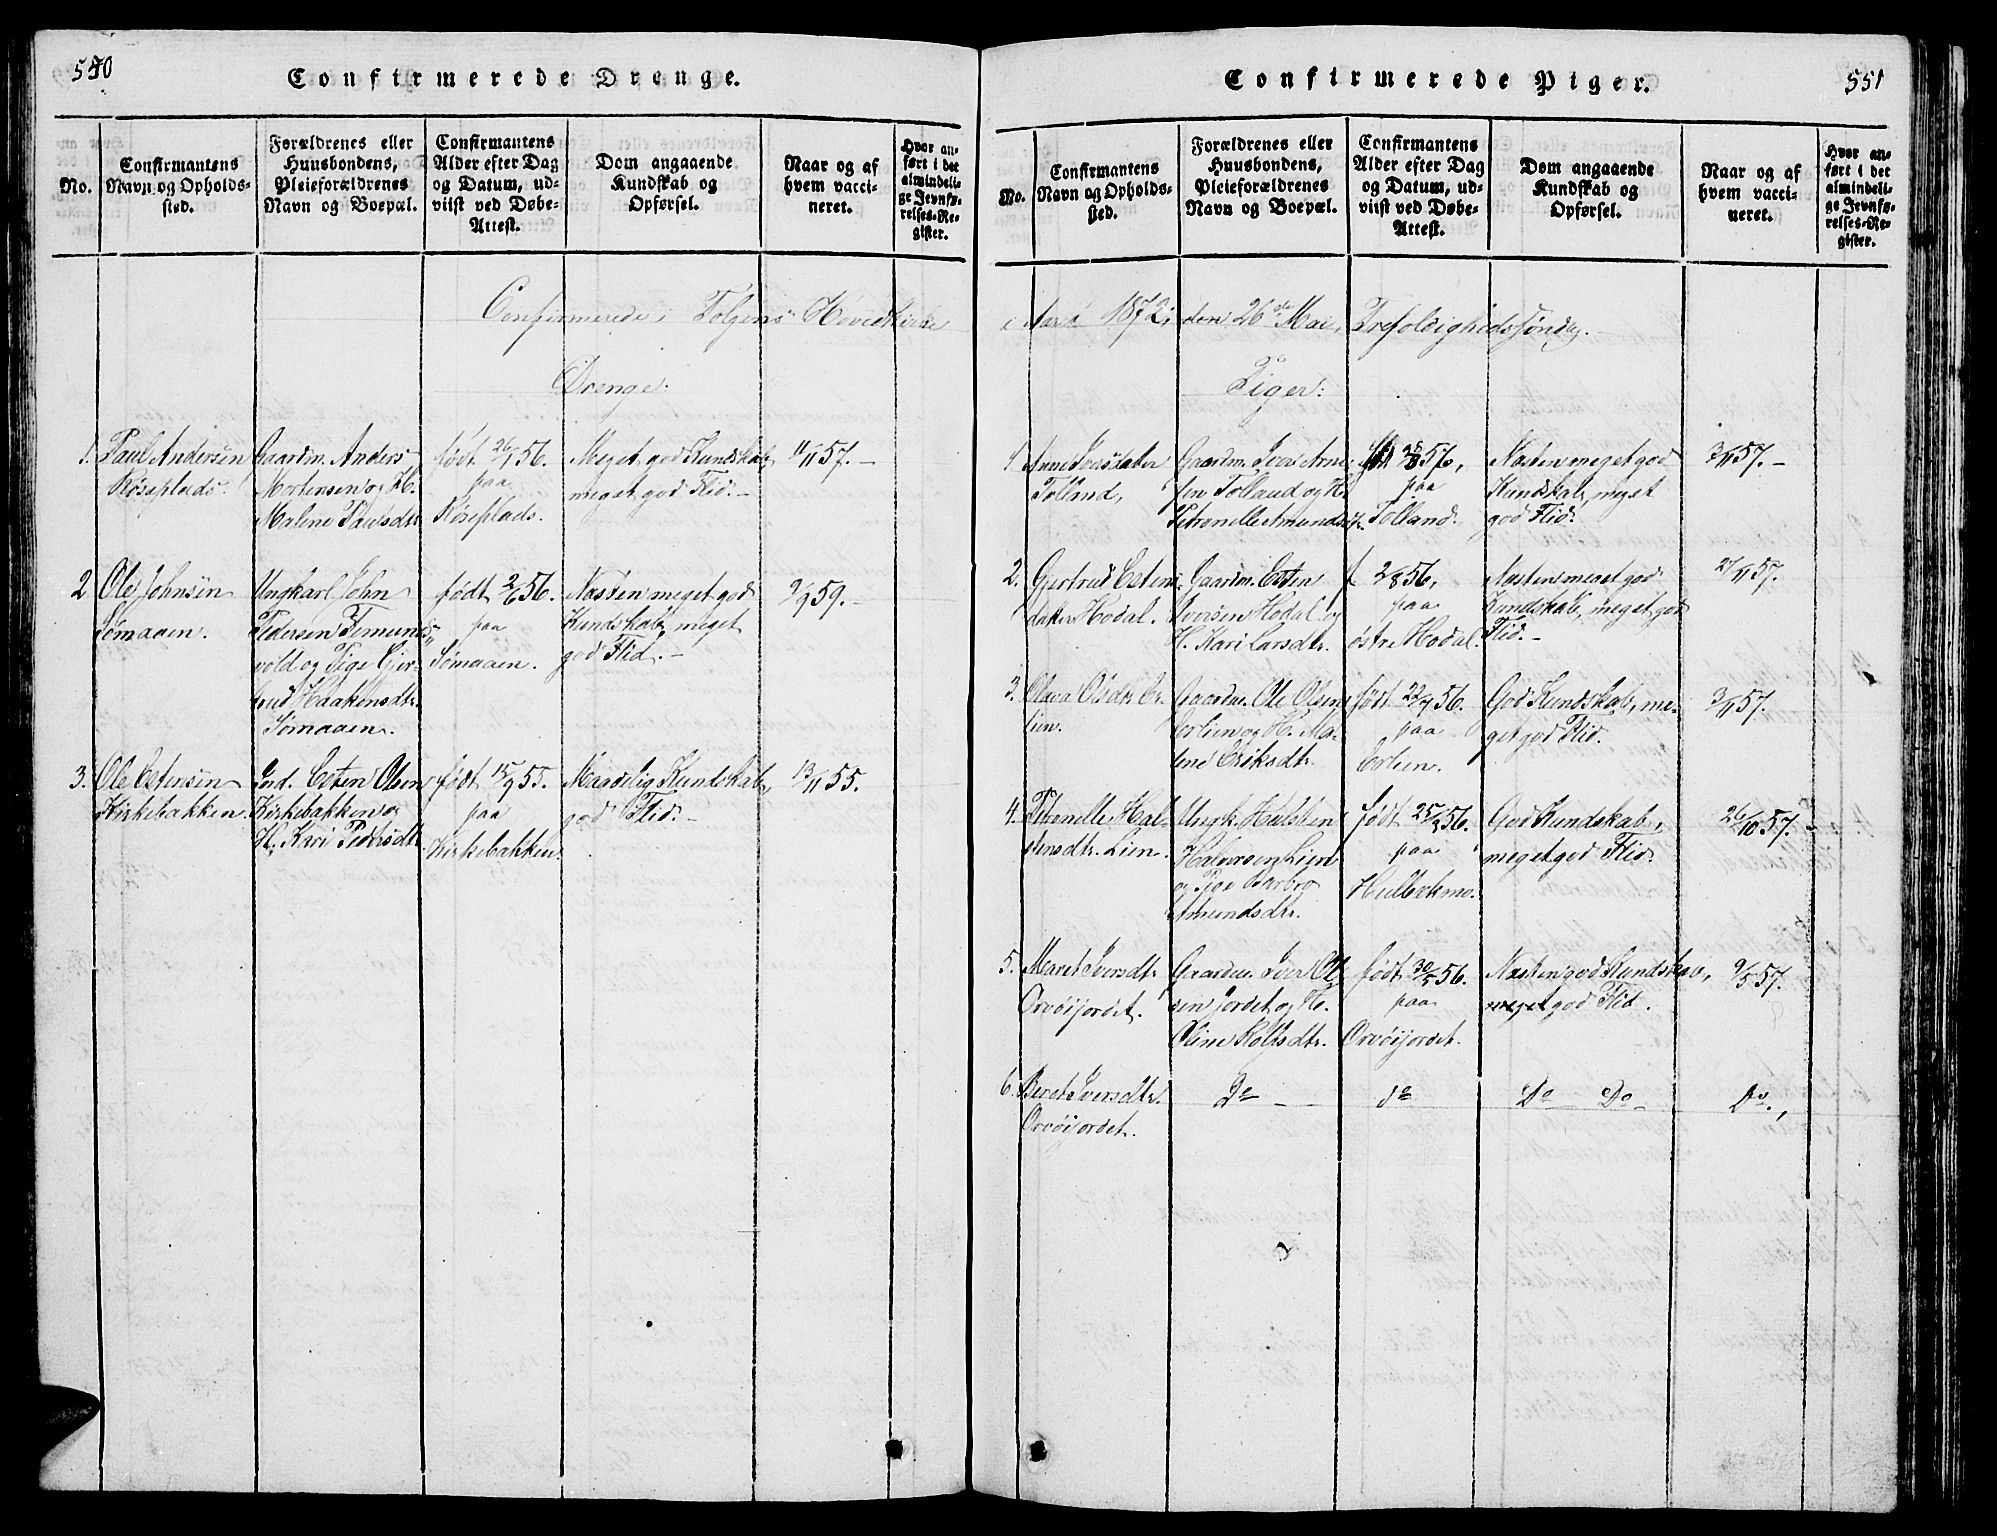 550
Confirmerede Drenge.
No.
Confirmantens
Navn og Opholds-
sted.
Forældrenes eller
Huusbondens,
Pleieforældrenes
Navn og Boepæl.
Confirmantens
Alder efter Dag
og Datum, ud-
viist ved Døbe-
Attest.
Dom angaaende
Kundskab og
Opførsel.
Naar og af
hvem vacci-
neret.
Hvor an-
ført i det
almindeli-
ge Jevnfø-
relses-Re-
gister.
Confirmerede i Tolgens Hovedkirke
Drenge:
1.
Paul Andersen
Røseplads.
Gaardm. Anders
Mortensen og H.
Malene Paulsdtr.
født 26/1 56.
paa
Røseplads.
Meget god Kundskab,
meget god Flid.-
11/11 57.-
2
Ole Johnsen
Sømaaen.
Ungkarl John
Pedersen Femunds
vold og Pige Gjer-
trud Haakensdtr.
Sømaaen.
født 2/6 56.
paa
Sømaaen.
Næsten meget god
Kundskab, meget
god Flid.-
9/9 59.-
3.
Ole Estensen
Kirkebakken.
Ind. Esten Olsen
Kirkebakken og
H. Kari Pedersdtr.
født 15/9 55.
paa
Kirkebakken.
Maadelig Kundskab,
god Flid.-
13/11 55.
551
Confirmerede Piger.
No.
Confirmantens
Navn og Opholds-
sted.
Forældrenes eller
Huusbondens,
Pleieforældrenes
Navn og Boepæl.
Confirmantens
Alder efter Dag
og Datum, ud-
viist ved Døbe-
Attest.
Dom angaaende
Kundskab og
Opførsel.
Naar og af
hvem vacci-
neret.
Hvor an-
ført i det
almindeli-
ge Jevnfø-
relses-Re-
gister.
i Aaret 1872, den 26de Mai, Trefoldighedssøndag.
Piger:
1
Anne Iversdatter
Tolland,
Gaardm. Iver Arne-
sen Tolland og H.
Petronelle Amundsd.
56,
paa
Tolland.
Næsten meget god
Kundskab, meget
god Flid.
3/11 57.-
2.
Gjertrud Estens
datter Hodal.
Gaardm. Esten
Iversen Hodal og
H. Kari Larsdtr.
f 2/8 56,
paa
østre Hodal.
Næsten meget god
Kundskab, meget god
Flid.-
2/11 57.
3.
Olava Olsdtr. Er-
lien.
Gaardm. Ole Olsen
Erlien og H. Ma-
lene Eriksdtr.
født 22/7 56.
paa
Erlien.
God Kundskab, me-
get god Flid.
3/11 57.
4.
Petronelle Hal-
stensdtr. Lien.
Ungk. Halsten
Halvorsen Lien
og Pige Barbro
Amundsdtr.
født 25/3 56.
paa
Hulbækmo.
God Kundskab,
meget god Flid.
26/10 57.
5.
Maret Iversdtr.
Orvøijordet.
Gaardm. Iver Ol-
sen jordet og H.
Oline Rolfsdtr.
født 30/5 56.
paa
Orvøijordet.
Næsten god Kundskab,
meget god Flid.
9/5 57.
6.
Beret Iversdtr.
Orvøijordet.
Do -
do
Do Do -
Do.,